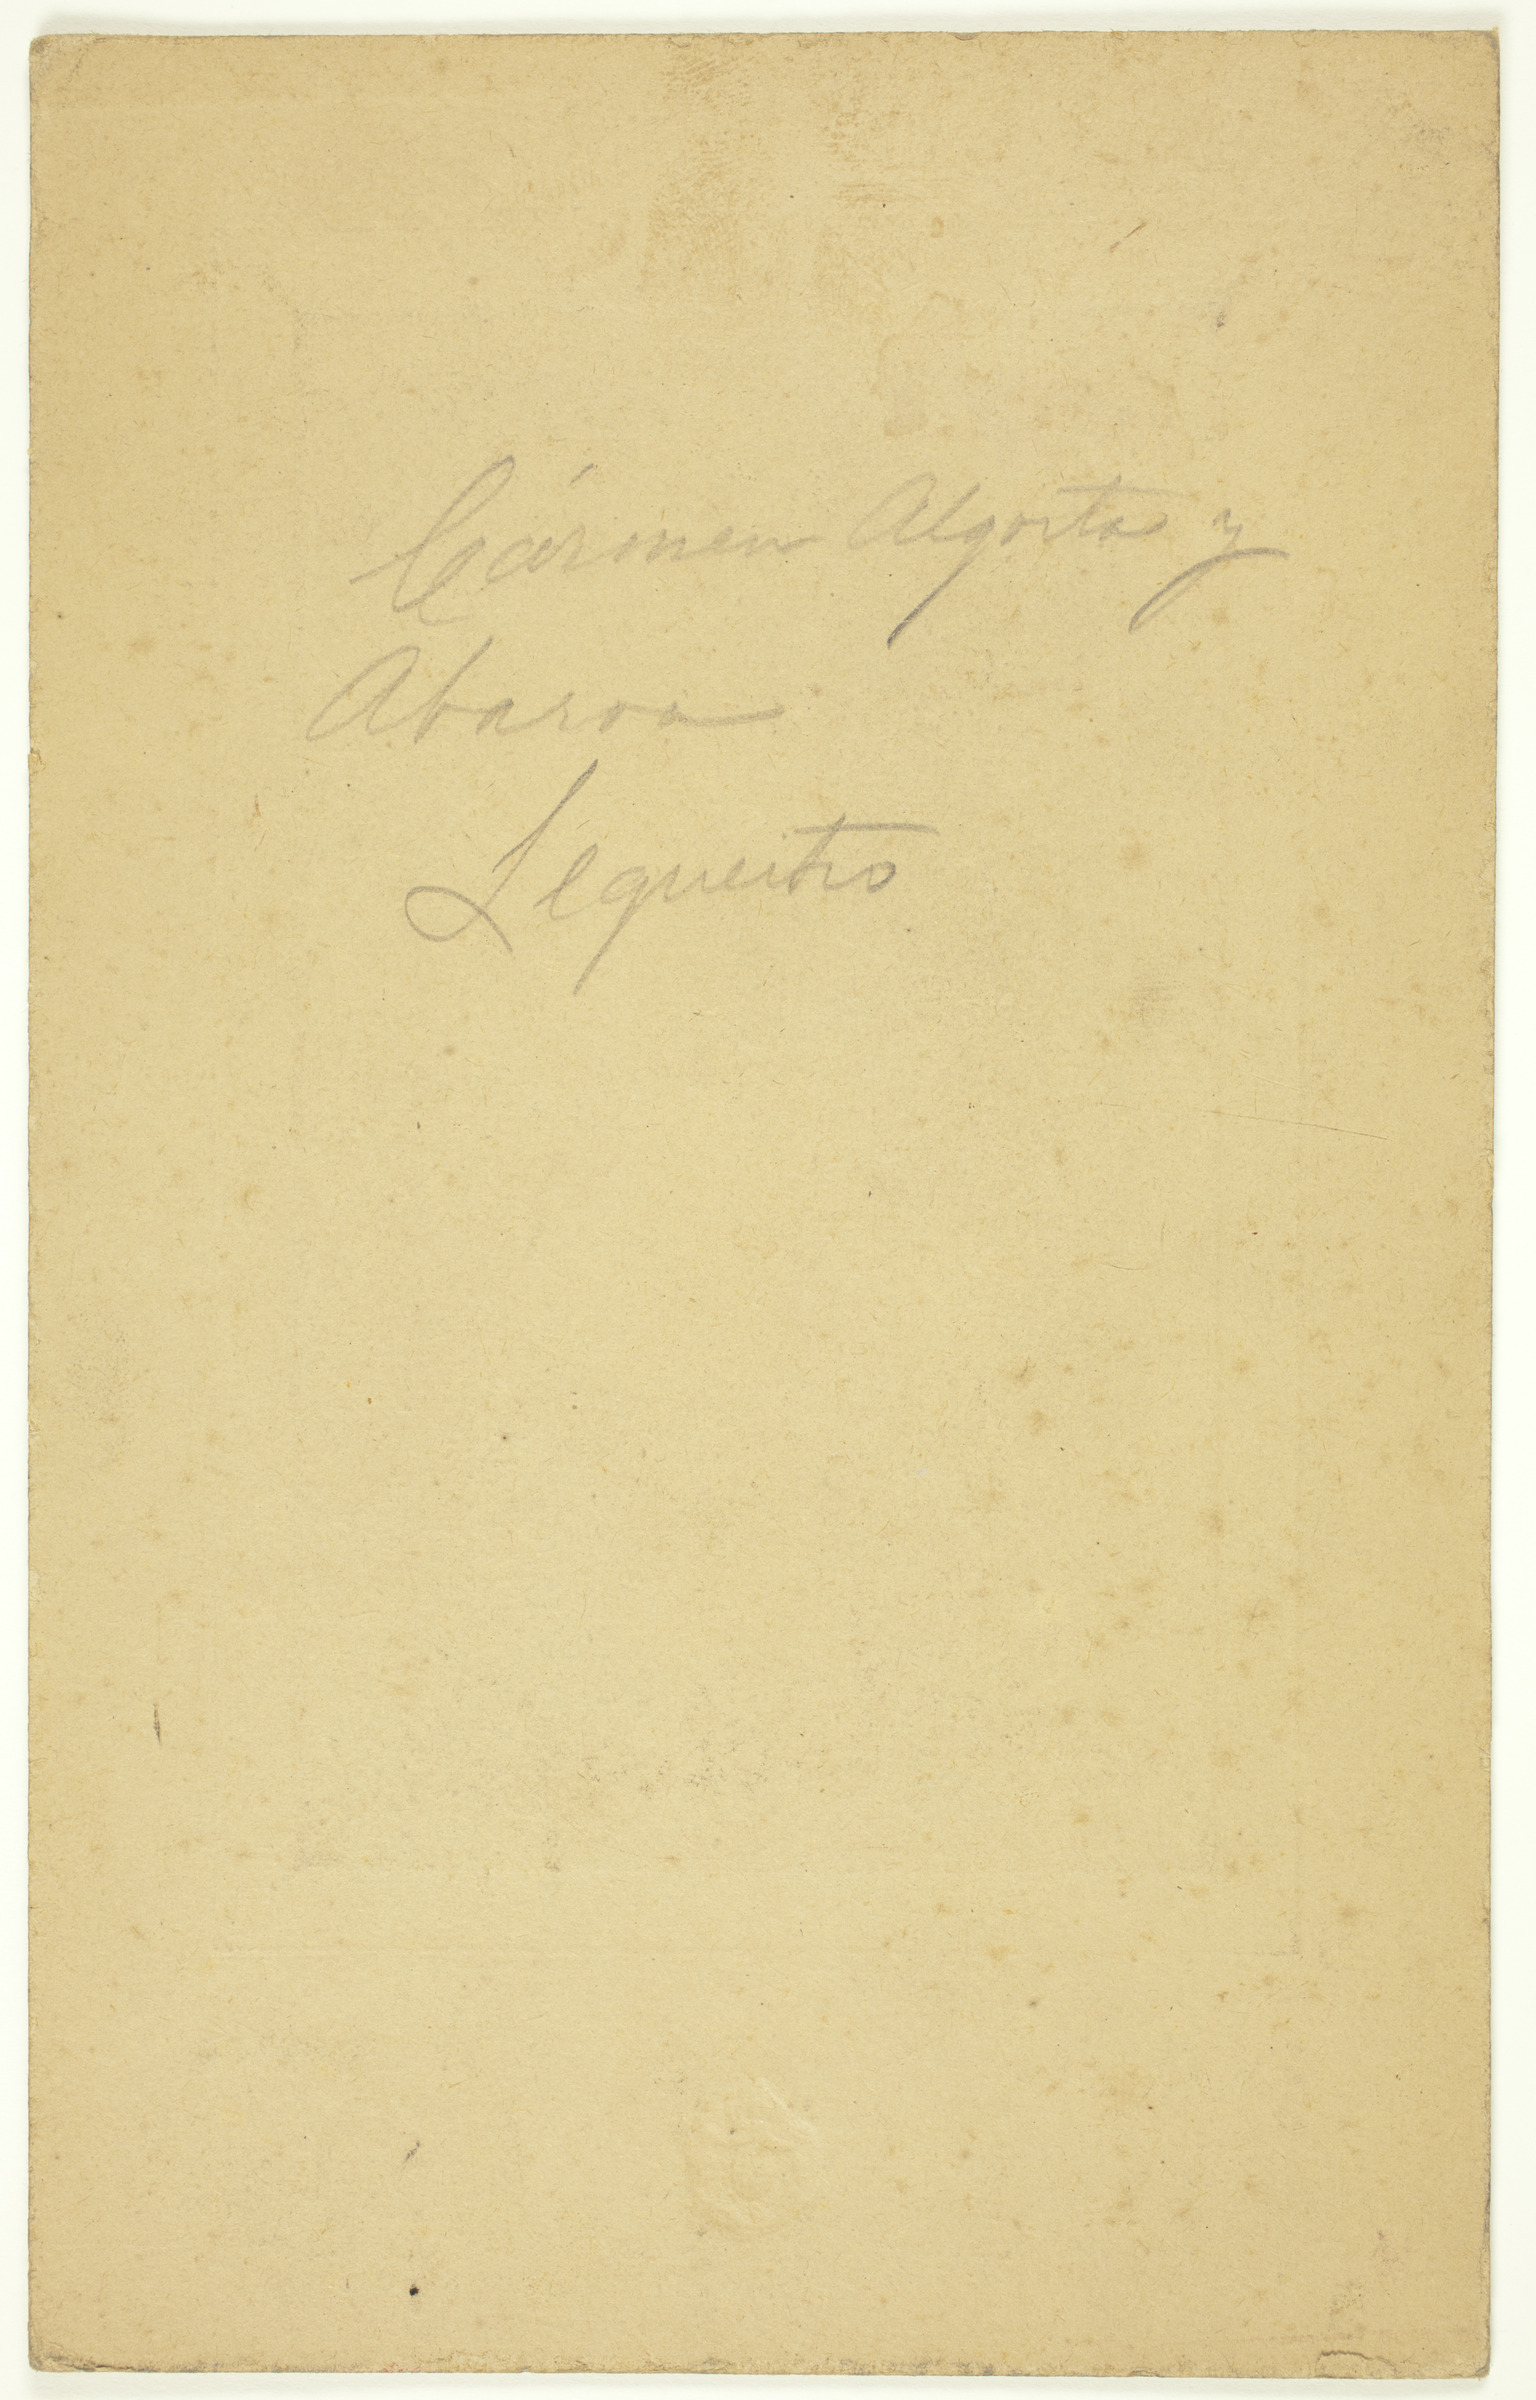 Cármen Algorta y
Abaroa
Lequeitio